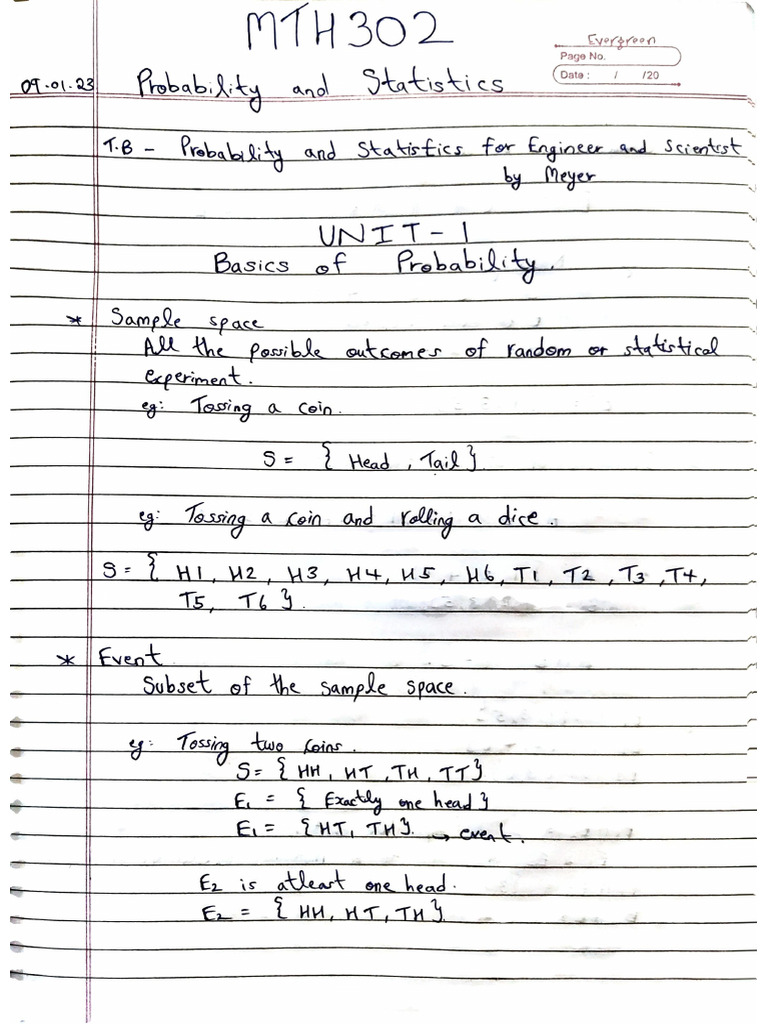 MTH302
Evergreen
Page No.
Date : / /20
09.01.23 Probability and Statistics
T.B - Probability and Statistics for Engineer and Scientist
by Meyer
UNIT-1
Basics of Probability.
* Sample space
All the possible outcomes of random or statistical
experiment.
eg: Tossing a coin.
S = { Head , Tail }
eg: Tossing a coin and rolling a dice.
S = { H1, H2, H3, H4, H5, H6, T1, T2, T3, T4,
T5, T6 }
* Event
Subset of the sample space.
eg: Tossing two coins.
S = { HH, HT, TH, TT }
E₁ = { Exactly one head }
E₁ = { HT, TH } → event.
E₂ is atleast one head.
E₂ = { HH, HT, TH }